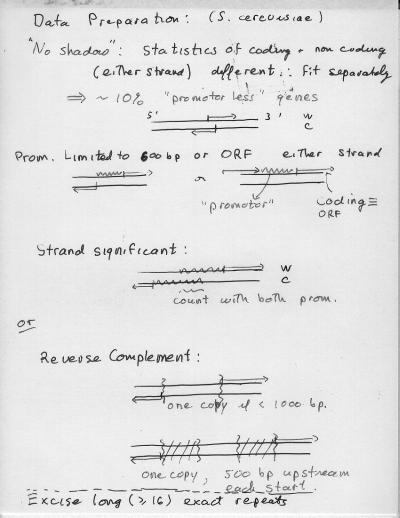 Data Preparation: (S. cerevisiae)
"No shadow": Statistics of coding + non coding
(either strand) different ∴ fit separately
⇒ ~ 10% "promotor less" genes
5' 3' W
C
Prom. Limited to 600 bp or ORF either strand
or
"promotor" Coding ≡
ORF
Strand significant:
W
C
count with both prom.
or
Reverse Complement:
one copy if < 1000 bp.
one copy, 500 bp upstream
each start.
Excise long (≥16) exact repeats